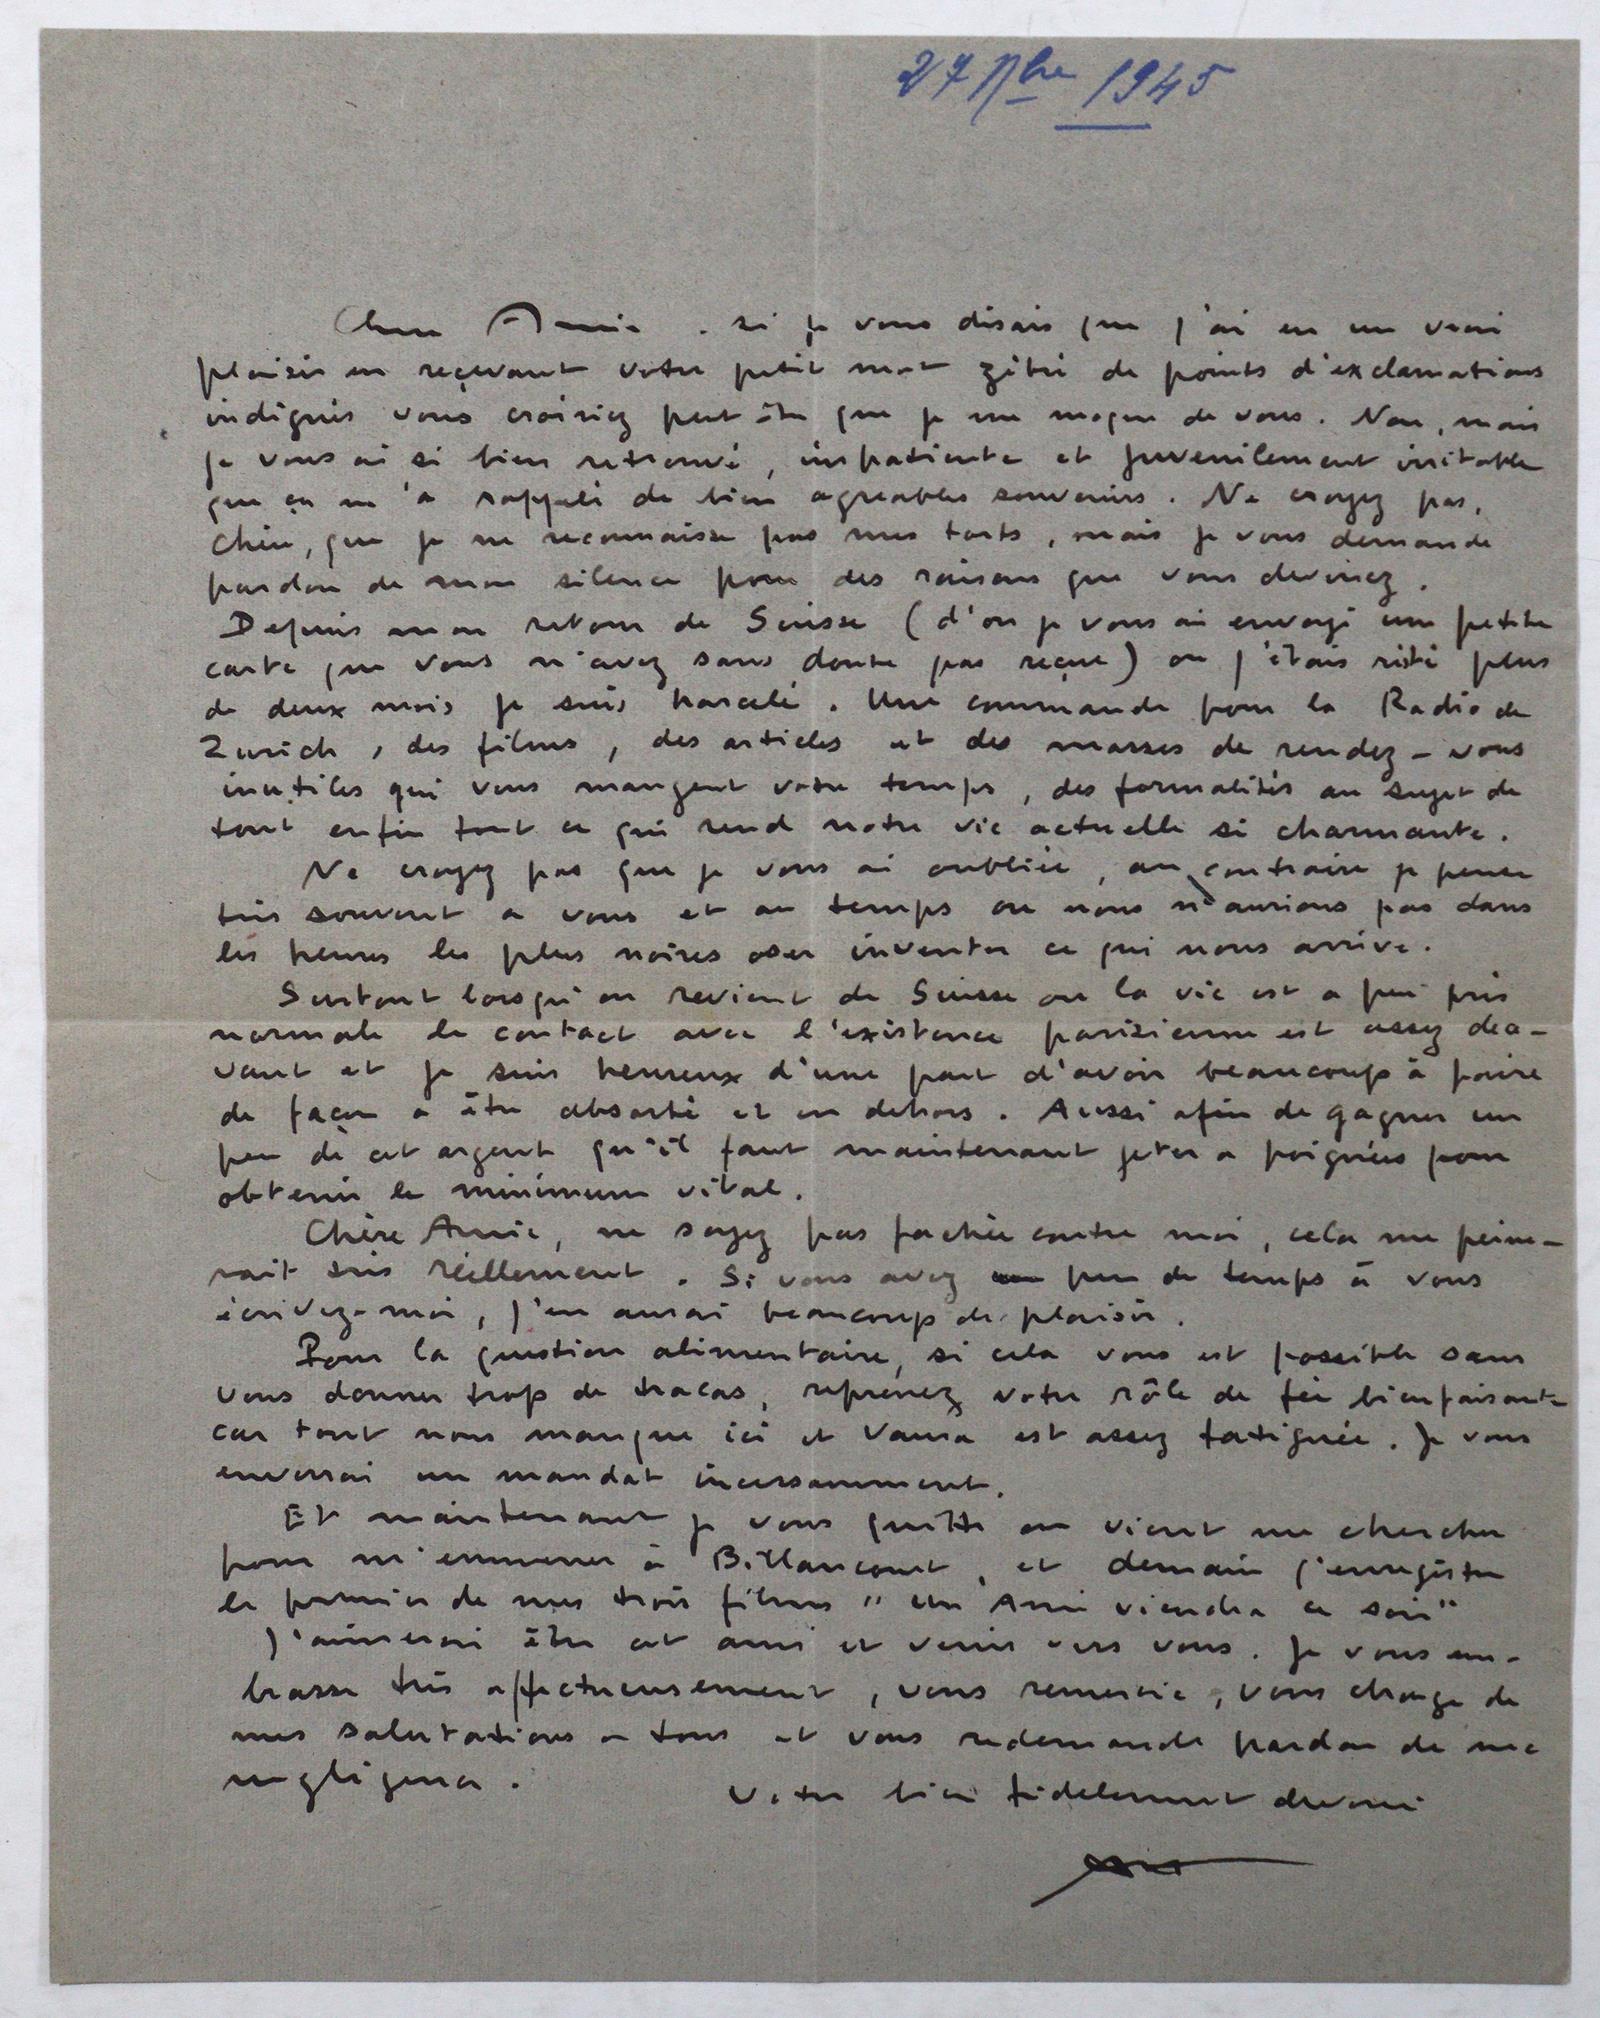 27 Nbre 1945
Chère Amie. si je vous disais que j'ai eu un vrai
plaisir en reçevant votre petit mot zébré de points d'exclamations
indignés vous croiriez peut être que je me moque de vous. Non, mais
je vous ai si bien retrouvé, impatiente et juvenilement irritable
que ça m'a rappelé de bien agreables souvenirs. Ne croyez pas,
chère, que je ne reconnaisse pas mes torts, mais je vous demande
pardon de mon silence pour des raisons que vous devinez.
Depuis mon retour de Suisse (d'ou je vous ai envoyé une petite
carte que vous n'avez sans doute pas reçue) ou j'étais resté plus
de deux mois je suis harcelé. Une commande pour la Radio de
Zurich, des films, des articles et des masses de rendez-vous
inutiles qui vous mangent votre temps, des formalités au sujet de
tout enfin tout ce qui rend notre vie actuelle si charmante.
Ne croyez pas que je vous ai oubliée, au contraire je pense
très souvent a vous et au temps ou nous n'aurions pas dans
les heures les plus noires oser inventer ce qui nous arrive.
Surtout lorsqu'on revient de Suisse ou la vie est a peu près
normale le contact avec l'existence parisienne est assez déce-
vant et je suis heureux d'une part d'avoir beaucoup à faire
de façon a être absorbé et en dehors. Aussi afin de gagner un
peu de cet argent qu'il faut maintenant jeter a poignées pour
obtenir le minimum vital.
Chère Amie, ne soyez pas fachée contre moi, cela me peine-
rait très réellement. Si vous avez peu de temps à vous
écrivez-moi, j'en aurai beaucoup de plaisir.
Pour la question alimentaire, si cela vous est possible sans
vous donner trop de tracas, reprenez votre rôle de fée bienfaisante
car tout nous manque ici et est assez fatiguée. Je vous
enverrai un mandat incessamment.
Et maintenant je vous quitte on vient me chercher
pour m'emmener à Billancourt, et demain j'enregistre
le premier de mes trois films "Un Ami viendra ce soir"
J'aimerai être cet ami et venir vers vous. Je vous em-
brasse très affectueusement, vous remercie, vous charge de
mes salutations a tous et vous redemande pardon de ma
negligence.
Votre bien fidelement devoué